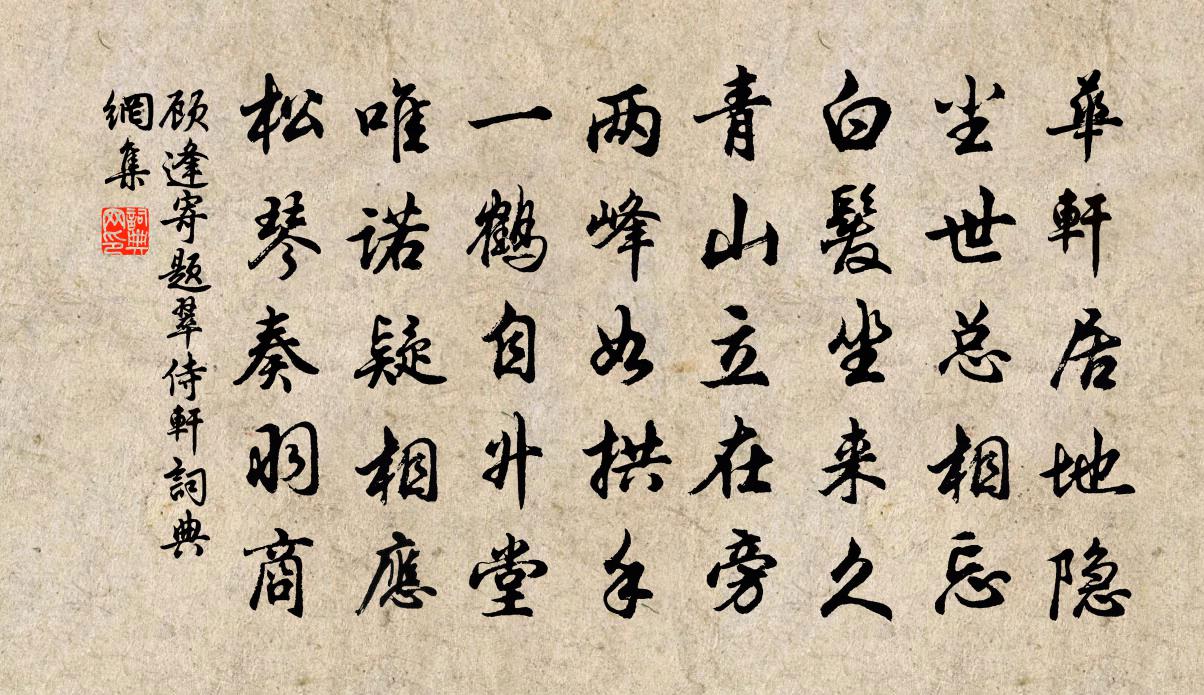 華軒居地隐
尘世总相忘
白髮坐来久
青山立在旁
两峰如拱手
一鶴自升堂
唯诺疑相應
松琴奏羽商
顾逢寄题翠侍軒詞典
網集
詞典
网印